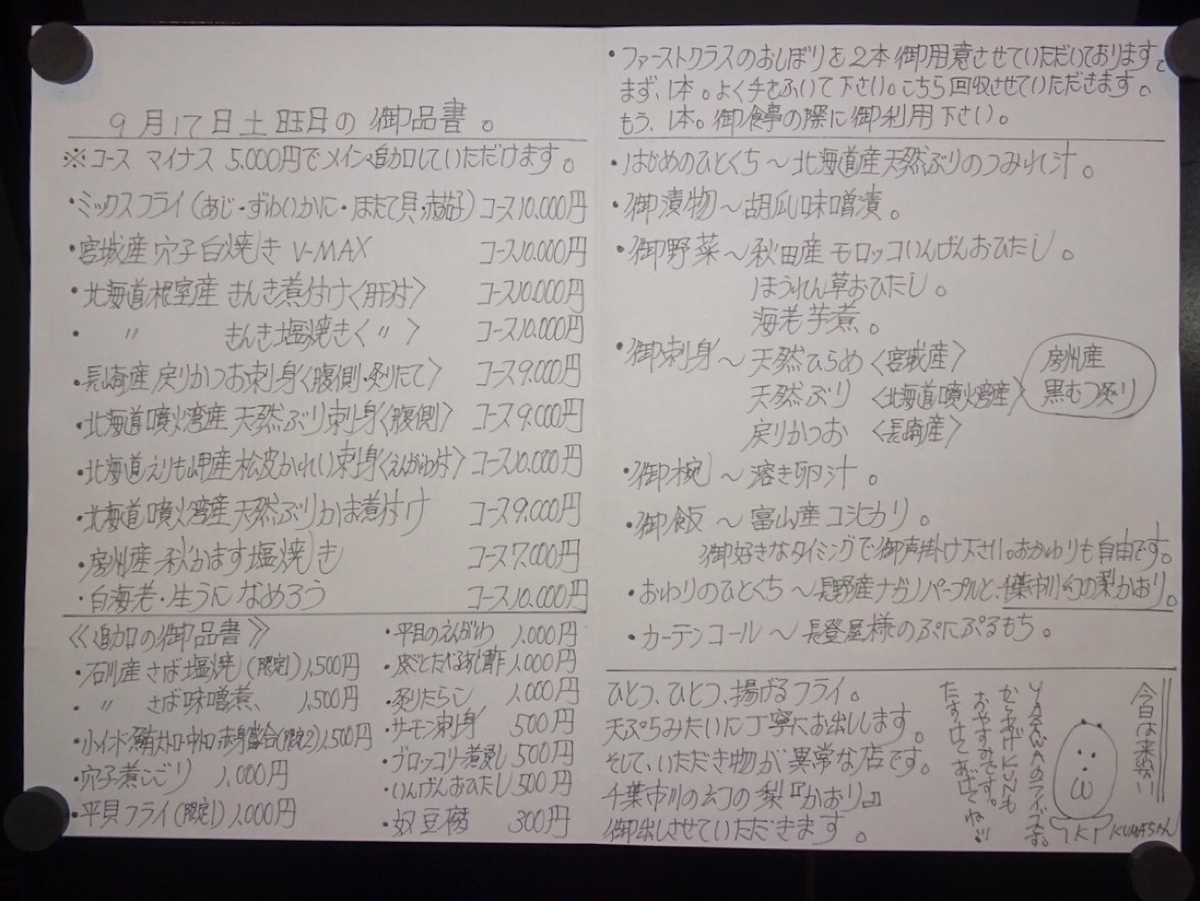 9月17日土曜日の御品書。
※コース マイナス 5.000円でメイン追加していただけます。
・ミックスフライ(あじ・ずわいかに・ほたて貝・赤海老) コース10.000円
・宮城産 穴子 白焼き V-MAX コース10.000円
・北海道根室産 きんき煮付け〈肝付〉 コース10.000円
・ 〃 きんき塩焼き〈〃〉 コース10.000円
・長崎産 戻りかつお刺身〈腹側・炙りたて〉 コース9.000円
・北海道噴火湾産 天然ぶり刺身〈腹側〉 コース9.000円
・北海道えりも岬産 松皮かれい刺身〈えんがわ付〉 コース10.000円
・北海道噴火湾産 天然ぶりかま煮付け コース9.000円
・房州産 秋かます塩焼き コース7.000円
・白海老・生うに なめろう コース10.000円
《追加の御品書》
・石川産 さば塩焼(限定1) 1,500円
・ 〃 さば味噌煮、 1,500円
・インド鮪大トロ・中トロ・赤身盛合(限定2) 1,500円
・穴子煮こごり 1,000円
・平貝フライ(限定1) 1,000円
・平目のえんがわ 1,000円
・皮ごとたべるあじ酢 1,000円
・炙りたらこ 1,000円
・サーモン刺身 500円
・ブロッコリー煮浸し 500円
・いんげんおひたし 500円
・奴豆腐 300円
・ファーストクラスのおしぼりを2本御用意させていただいております。
まず、1本。よく手をふいて下さい。こちら回収させていただきます。
もう、1本。御食事の際に御利用下さい。
・はじめのひとくち～北海道産天然ぶりのつみれ汁。
・御漬物～胡瓜味噌漬。
・御野菜～秋田産 モロッコいんげんおひたし。
ほうれん草おひたし。
海老芋煮。
・御刺身～天然ひらめ〈宮城産〉
天然ぶり〈北海道噴火湾産〉
戻りかつお〈長崎産〉
房州産
黒むつ炙り
・御椀～溶き卵汁。
・御飯～富山産コシヒカリ。
御好きなタイミングで御声掛け下さい。おかわりも自由です。
・おわりのひとくち～長野産ナガノパープルと、千葉市川幻の梨かおり。
・カーテンコール～長登屋様のぷにぷるもち。
ひとつ、ひとつ、揚げるフライ。
天ぷらみたいに丁寧にお出しします。
そして、いただき物が異常な店です。
千葉市川の幻の梨『かおり』
御出しさせていただきます。
今日は来ない
YAZAWAのライブです。
からあげKUNも
おやすみです。
たすけてあげてね!!